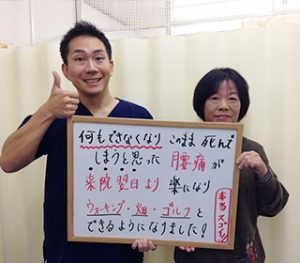 何もできなくなり このまま 死んで
しまうと思った 腰痛が
来院翌日より 楽になり
ウォーキング・畑・ゴルフと
できるようになりました!
本当スゴイ!!